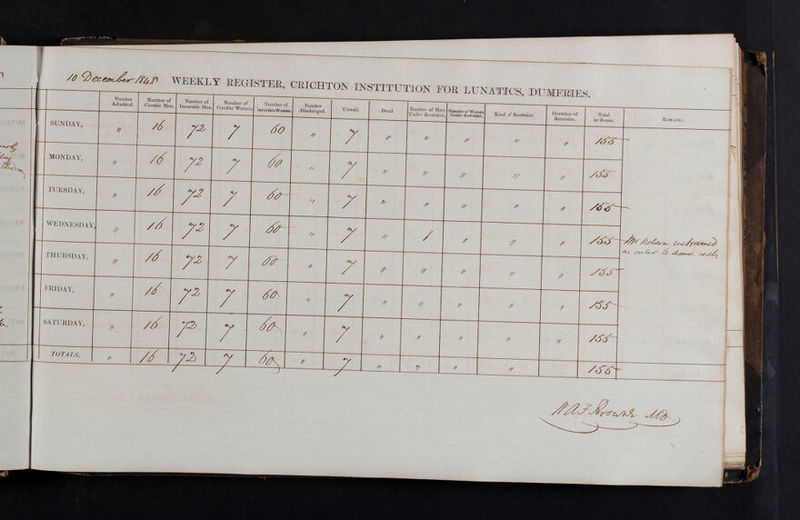 10 December 1848 WEEKLY REGISTER, CRICHTON INSTITUTION FOR LUNATICS, DUMFRIES.
Number Admitted. Number of Curable Men. Number of Incurable Men. Number of Curable Women. Number of Incurable Women. Number Discharged. Unwell. Dead. Number of Men Under Restraint. Number of Women Under Restraint. Kind of Restraint. Duration of Restraint. Total in House. REMARKS.
SUNDAY, " 16 72 7 60 " 7 " " " " " 155
MONDAY, " 16 72 7 60 " 7 " " " " " 155
TUESDAY, " 16 72 7 60 " 7 " " " " " 155
WEDNESDAY, " 16 72 7 60 " 7 " 1 " " " 155 Mr restrained
in order to
THURSDAY, " 16 72 7 60 " 7 " " " " " 155
FRIDAY, " 16 72 7 60 " 7 " " " " " 155
SATURDAY, " 16 72 7 60 " 7 " " " " " 155
TOTALS, " 16 72 7 60 " 7 " " " " 155
W A F Browne MD